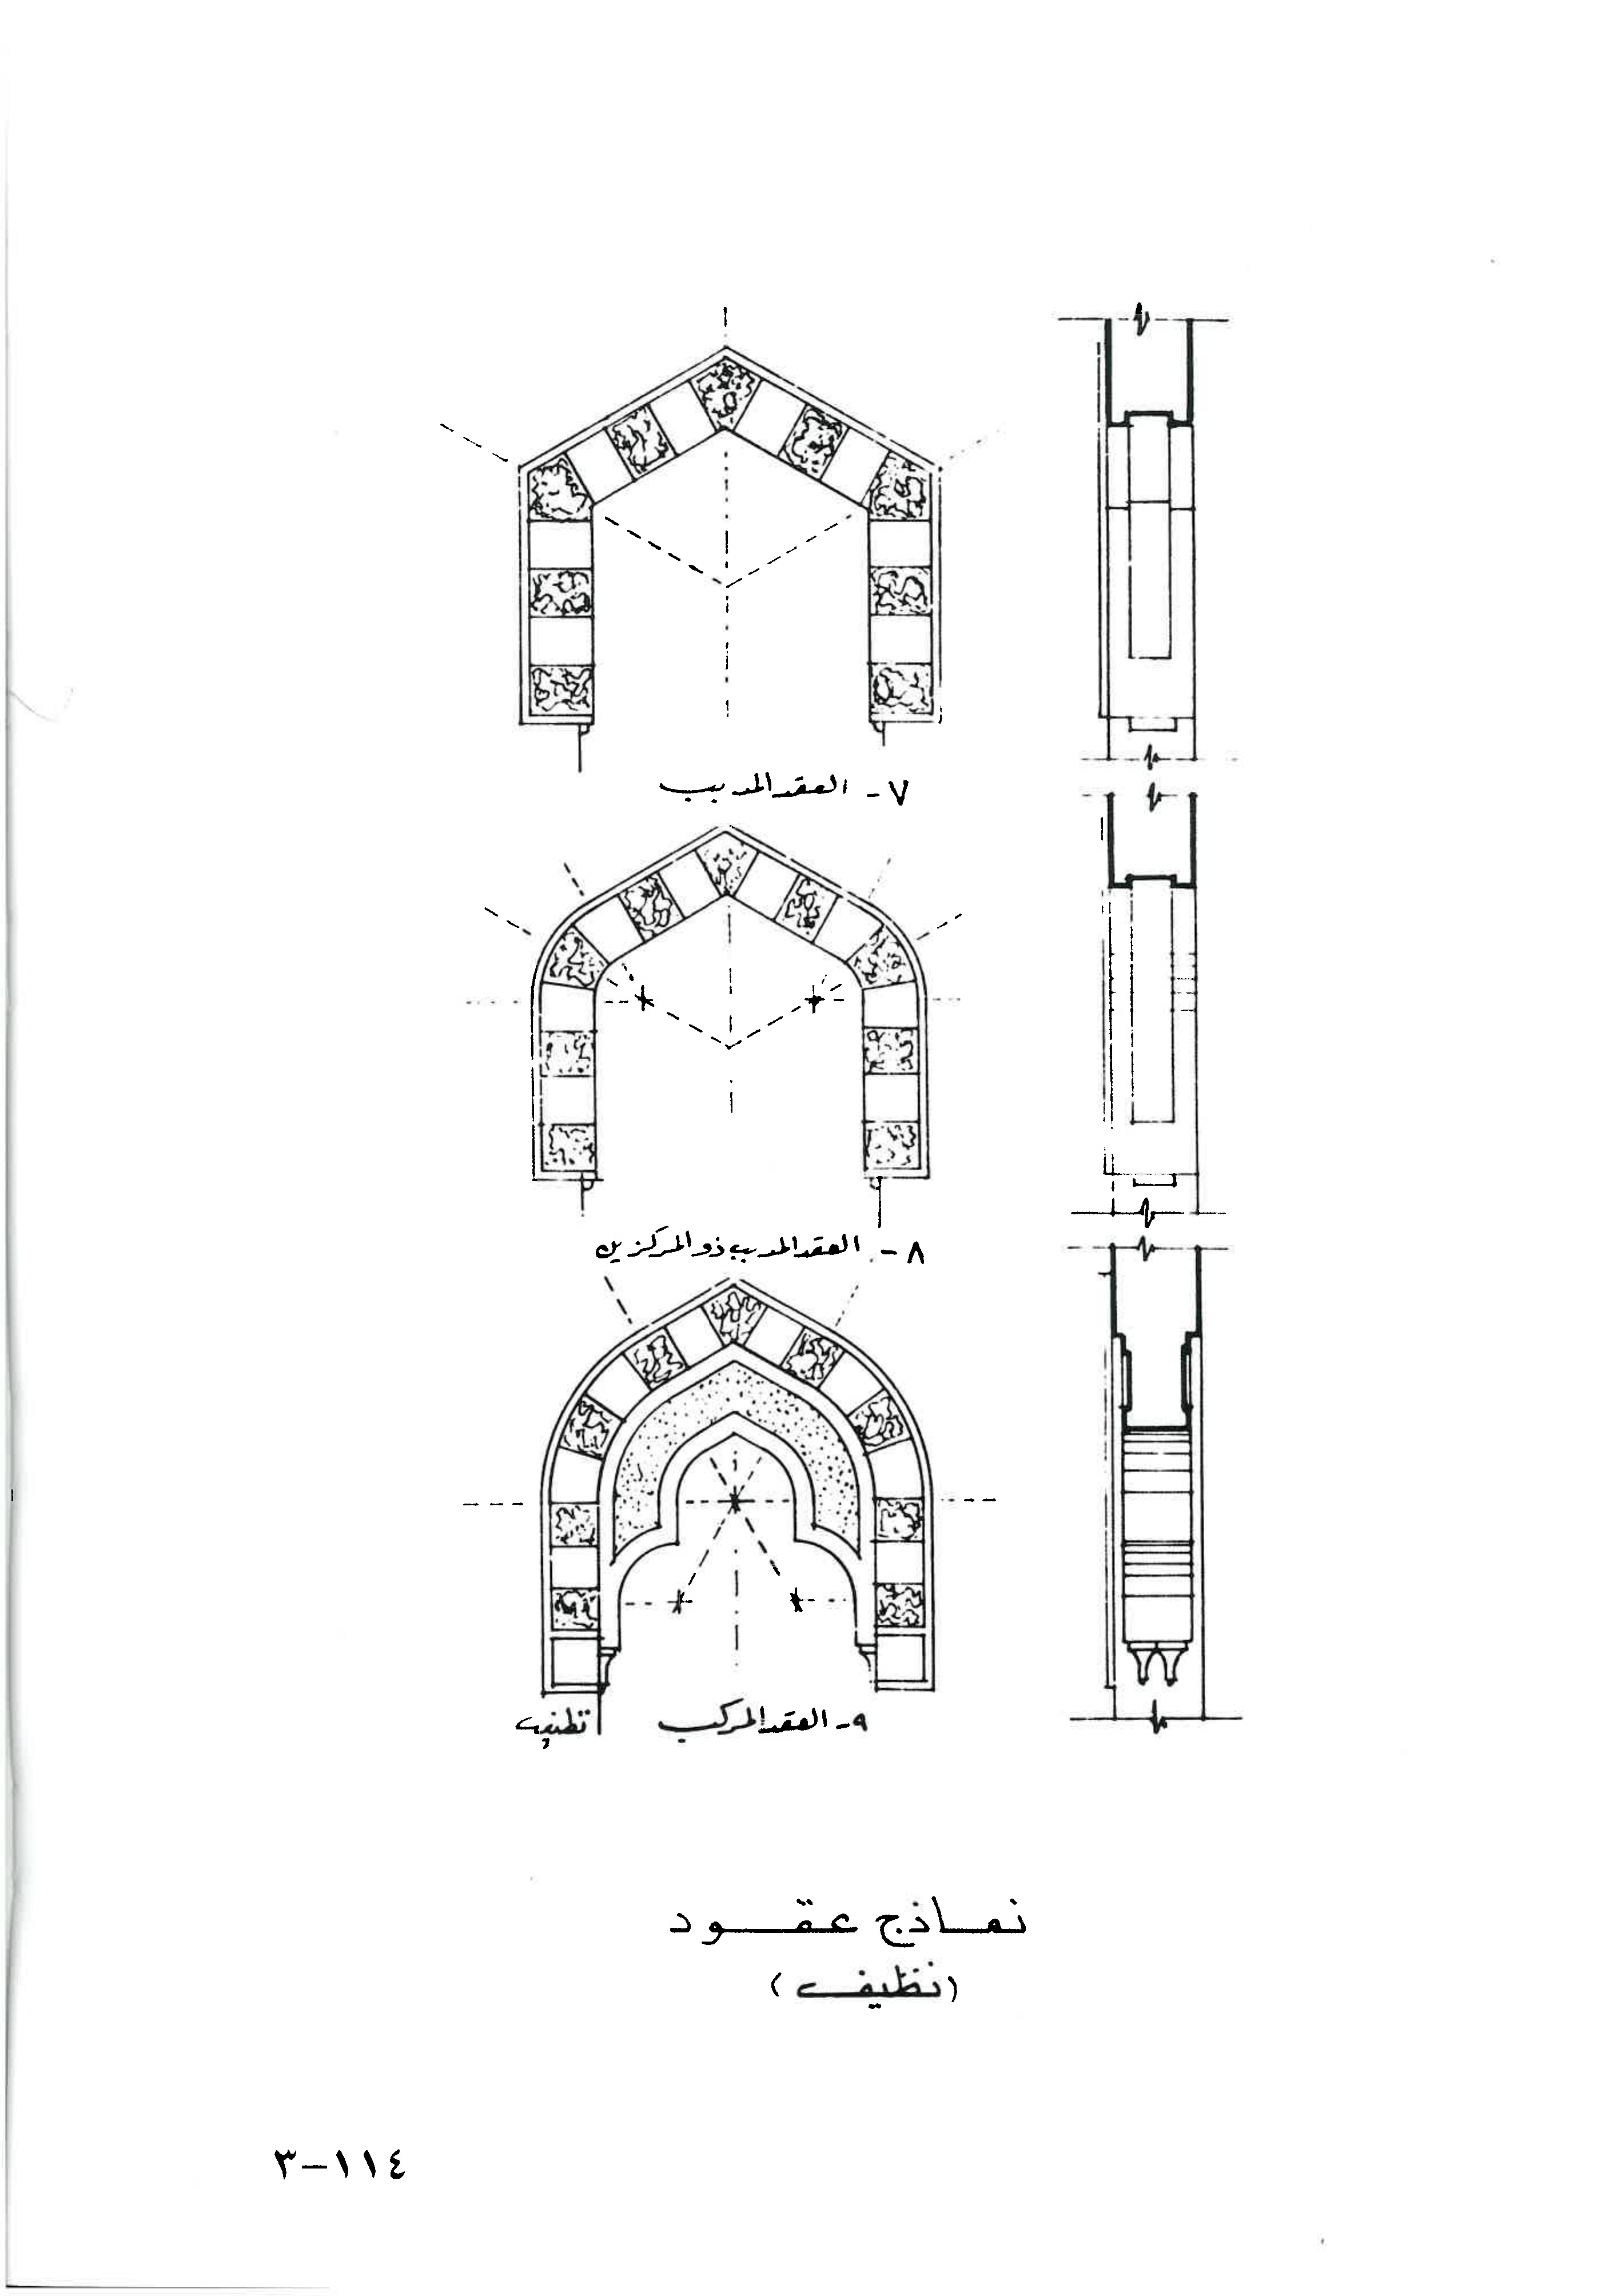 ٧- العقد المدبب
٨- العقد المدبب ذو المركزين
٩- العقد المركب
تطنيب
نماذج عقود
(نظيف)
٣-١١٤